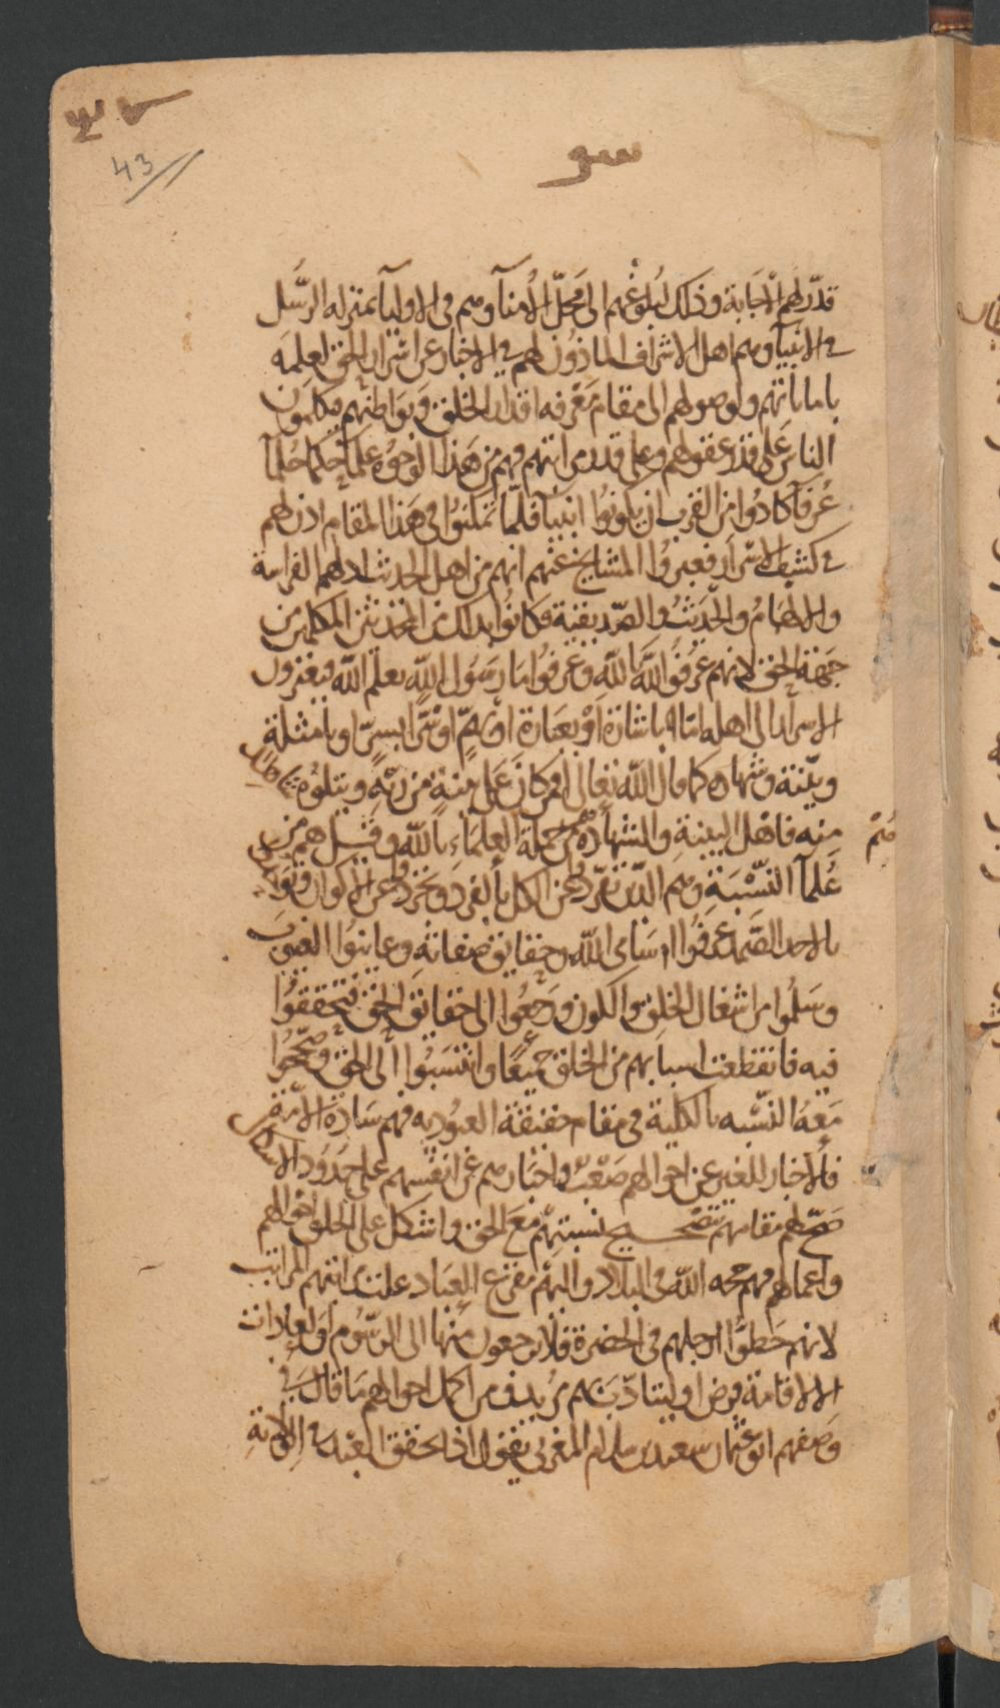 43
قدّر لهم الاجابة وذلك لبلوغهم الى محلّ الأمنآ وهم فى الاوليآ بمنزله الرسُل
فى الانبيآ وهم اهل الاشراف الماذون لهم فى الاخبار عن اسرار الحق لعلمه
باماناتهم ولوصولهم الى مقام معرفه اقدار الخلق وبواطنهم فيكلمون
الناس على قدر عقولهم وعلى قدر مراتبهم فهم من هذا الوجوه علمآ حكما حلمآ
عُرفآ كادُوا من القرب ان يكونوُا انبيآ فلمّا تمكنوُا فى هذا المقام اذن لهم
فى كشف الاسرار فعبروُا المشايخ عنهم انهم من اهل الحدث لهم الفراسة
والالهام والحَدَث والصّديقية فكانوُا بذلك من المحدثين المكلمين من
جهة الحق لانهم عرفوُا اللّه باللّه وعرفوُا ما رسُول اللّه بعلم اللّه فيعبرون
الاسرار الى اهله امّا باشارة اوْ بعبارة او بهمّ او سرّا بسرّ او بامثلة
وبيّنة وشهاده كما قال اللّه تعالى افمن كان على بينة من ربّه ويتلوُه شاهد
منه فاهل البينة والشهادة هم من جملة العلمآء باللّه وقيل هم من
هُمْ
عُلمآ النسْبَة وهم الذين تفرّدوا عن الكل بالفرد وتجرّدوا عن الاكوان وتوَلوا
بالاحد الصّمد عرفُوا اسَامى اللّه وحقايق صفاته وعاينوُا الغيوب
وسَلُوا من اشغال الخلق والكون ورجعُوا الى حقايق الحق فتحققوُا
فيه فانقطعت اسبابهم من الخلق جميعًا وانتسَبُوا الى الحق وصحّحوُا
معَهُ النسْبه بالكلية فى مقام حقيقة العبُوديه فهم سَادة الامة
فالاخبار للغير عن احوالهم صَعْبٌ واخبارهم عن انفسهم على حدُود الاشكال
صحّ لهم مقامهم بتصحيح نسبتهم معَ الحق واشكل على الخلق احوالهم
واعمالهم فهم حجه اللّه فى البلاد واليهم مفزع العباد علت مراتبهم المراتب
لانهم حَطوُّا ارحلهم فى الحضرة فلا يرجعون منها الى الرسُوم والعادات
الا لاقامة فرض او ليتادّبَ بهم مريد فمن اكمل احوالهم ما قال فى
وصفهم ابو عثمان سعيد بن سلام المغربى يقول اذا تحقق العبد فى الولاية